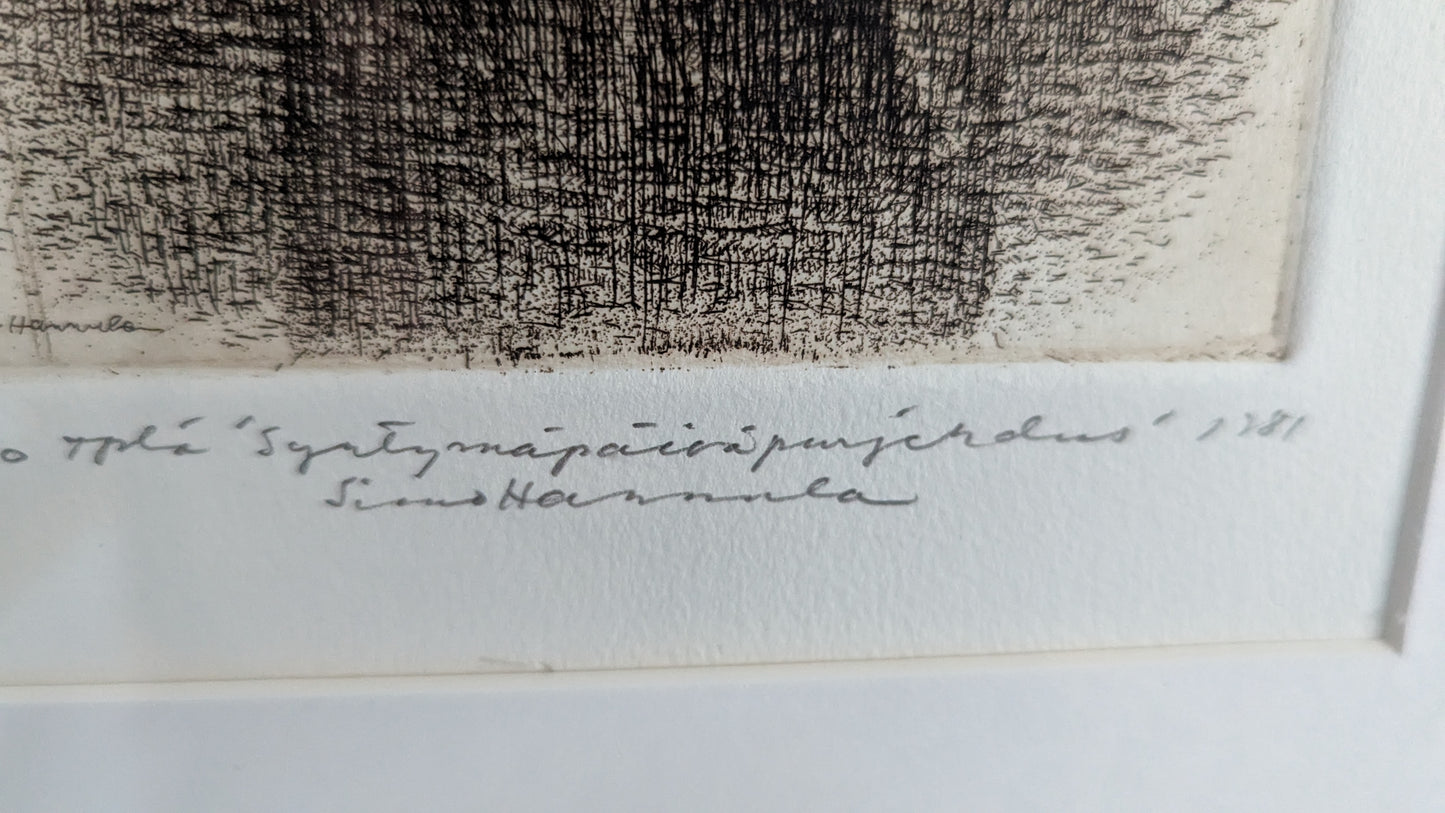 Hannula
o tpl á 'Syntymäpäiväpurjehdus' 1981
Simo Hannula